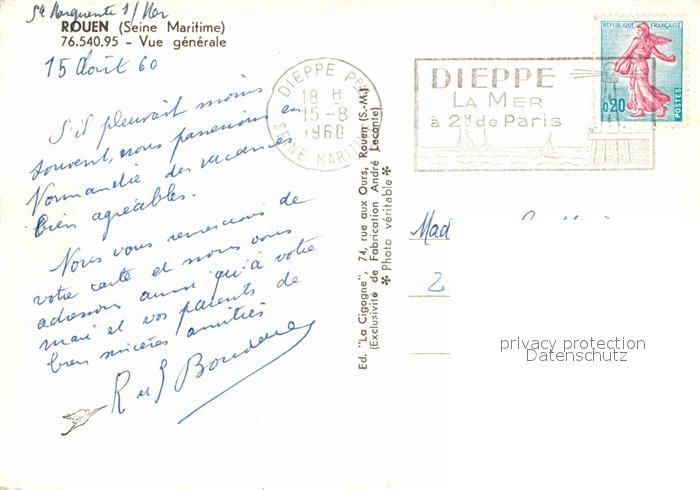 Ste Marguerite s/ Mer
ROUEN (Seine Maritime)
76.540.95 - Vue générale
15 Août 60
S'il pleuvait moins
souvent, nous passerions en
Normandie des vacances
bien agréables.
Nous vous remercions de
votre carte et nous vous
adressons ainsi qu'à votre
mari et vos parents de
bien sincères amitiés
R et S
DIEPPE PPAL
18 H
15-8
1960
SEINE MARITIME
DIEPPE
LA MER
à 2H de Paris
REPUBLIQUE FRANÇAISE
0,20
POSTES
Ed. "La Cigogne", 74, rue aux Ours, Rouen (S.-M.)
(Exclusivité de Fabrication André Leconte)
Photo véritable
Mad
2
privacy protection
Datenschutz